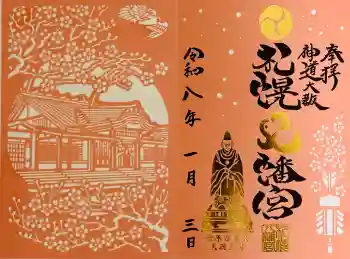 奉拝
神道大教
札幌八幡宮
令和八年 一月 三日